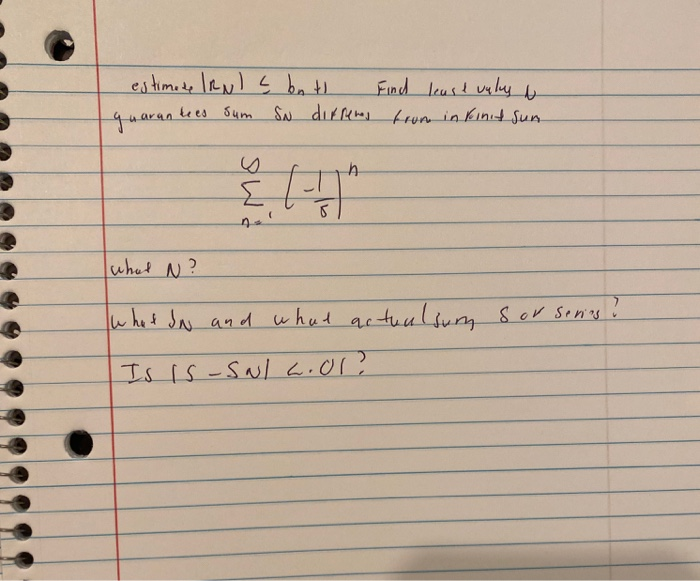 estimate |RN| ≤ bn+1 Find least value N
guarantees sum SN differs from infinit sum
∞
Σ (-1/8)^n
n=1
what N?
what SN and what actual sum S of series?
Is |S-SN| <.01?